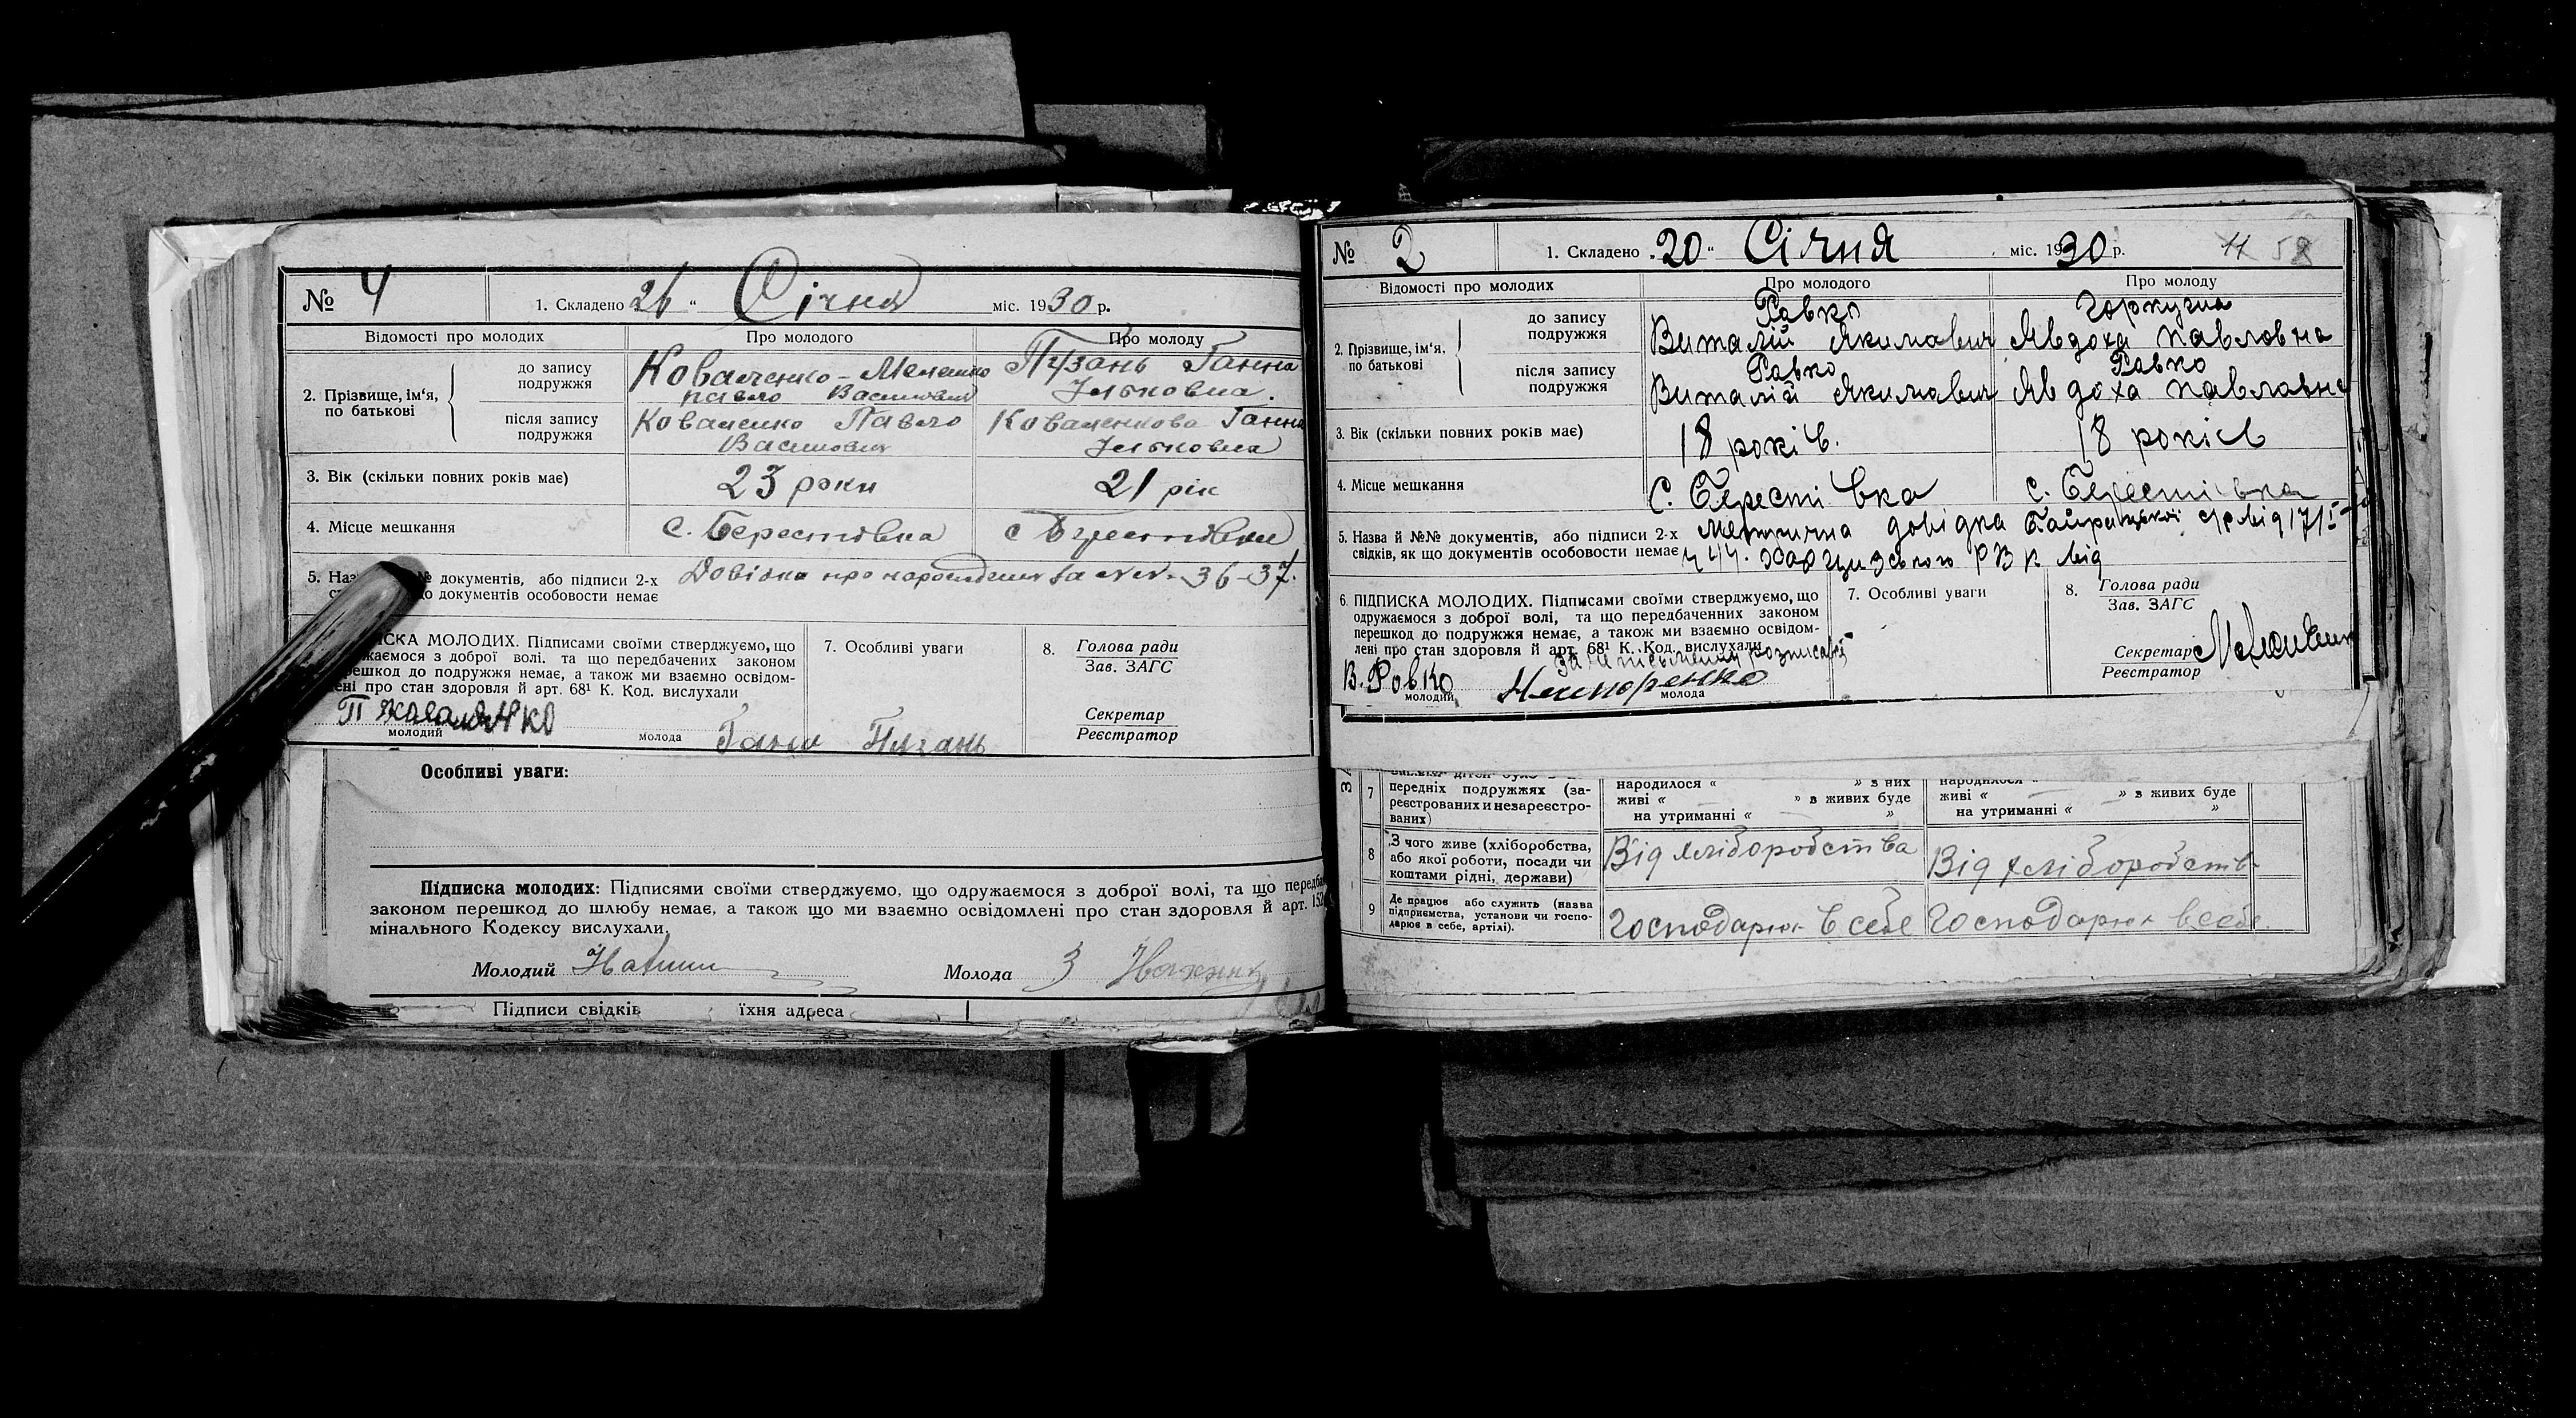 № 4
1. Складено 26 " Січня міс. 1930 р.
Відомості про молодих Про молодого Про молоду
2. Прізвище, ім'я, по батькові
до запису подружжя
Коваленко- Пузань Ганна
Павло Васильович Ільковна.
після запису подружжя
Коваленко Павло Коваленкова Ганна
Васильович Ільковна
3. Вік (скільки повних років має) 23 роки 21 рік
4. Місце мешкання с. Берестівка с Берестівка
5. документів, або підписи 2-х Довідка про народження за №№ 36-37.
документів особовости немає
МОЛОДИХ. Підписами своїми стверджуємо, що
з доброї волі. та що передбачених законом
до подружжя немає, а також ми взаємно освідом-
лені про стан здоровля й арт. 68¹ К. Код. вислухали
П Коваленко
молодий молода Ганна Пузань
7. Особливі уваги
8. Голова ради
Зав. ЗАГС
Секретар
Реєстратор
Особливі уваги:
Підписка молодих: Підписями своїми стверджуємо, що одружаємося з доброї волі, та що
законом перешкод до шлюбу немає, а також що ми взаємно освідомлені про стан здоровля й арт. 152
мінального Кодексу вислухали.
Молодий Молода З
Підписи свідків їхня адреса
№ 2
1. Складено „20" Січня міс. 1930 р. 58
Відомості про молодих Про молодого Про молоду
2. Прізвище, ім'я, по батькові
до запису подружжя
Равко
Виталій Якимович Явдоха Павловна
після запису подружжя
Равко Равко
Виталій Якимович Явдоха Павловна
3. Вік (скільки повних років має) 18 років. 18 років
4. Місце мешкання С. Берестівка с. Берестівка
5. Назва й №№ документів, або підписи 2-х Метрична довідка від 17/5
свідків, як що документів особовости немає ч 44. Харцизського РВК від
6. ПІДПИСКА МОЛОДИХ. Підписами своїми стверджуємо, що
одружаємося з доброї волі, та що передбаченних законом
перешкод до подружжя немає, а також ми взаємно освідом-
лені про стан здоровля й арт. 68¹ К. Код. вислухали
В. Ровко
молодий молода
7. Особливі уваги
8. Голова ради
Зав. ЗАГС
Секретар
Реєстратор
7 передніх подружжях (за-
реєстрованих и незареєстро-
ваних)
народилося « » з них
живі « » в живих буде
на утриманні « »
народилося «
живі « » в живих буде
на утриманні « »
8 З чого живе (хліборобства,
або якої роботи, посади чи
коштами рідні, держави)
Від хліборобства Від хліборобств
9 Де працює або служить (назва
підприємства, установи чи госпо-
дарює в себе, артілі).
Господарює в себе Господарює в себе